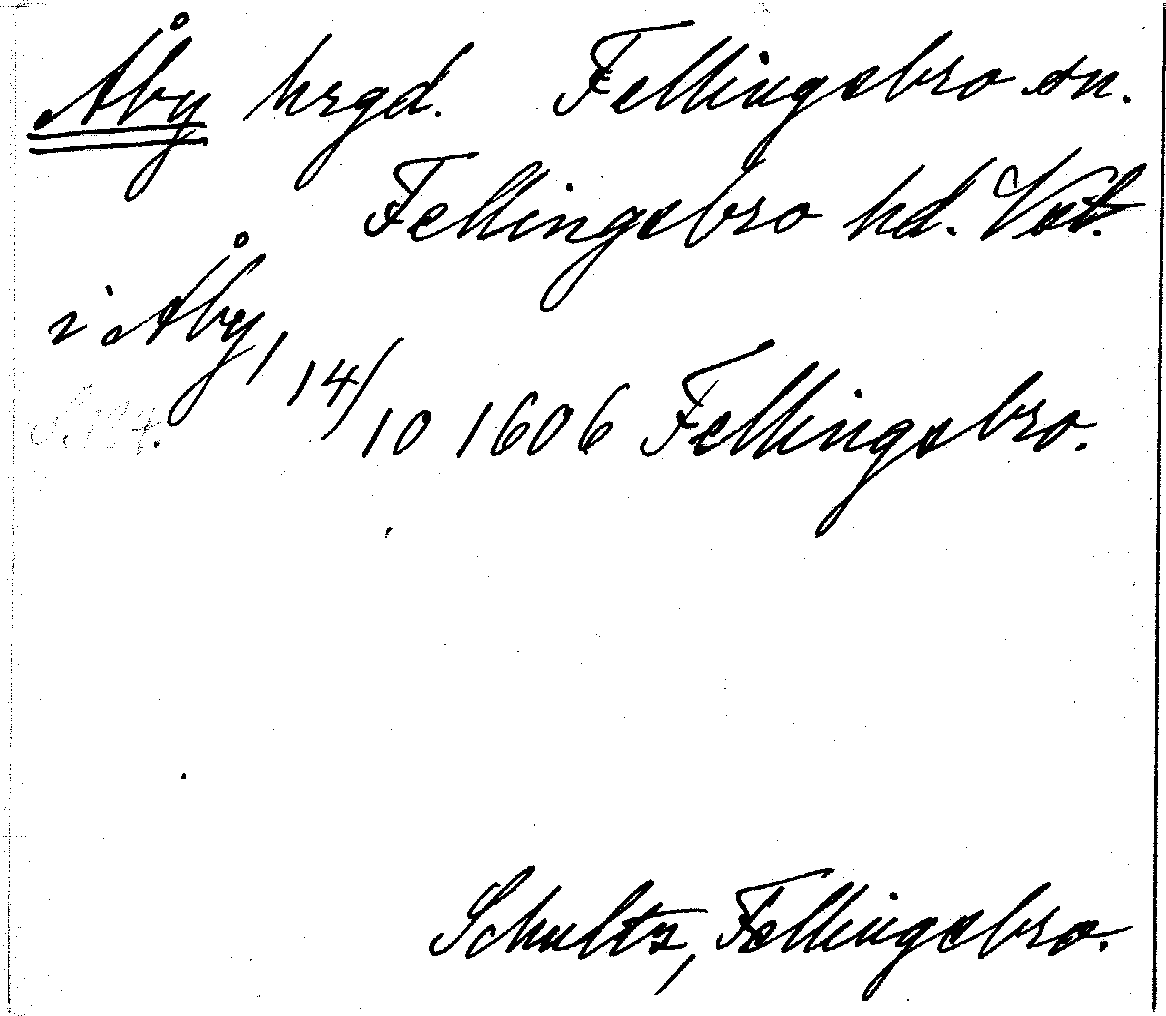 Åby hrgd. Fellingsbro sn.
Fellingsbro hd. Vstl.
i Åby, 14/10 1606 Fellingsbro.
Schultz, Fellingsbro.